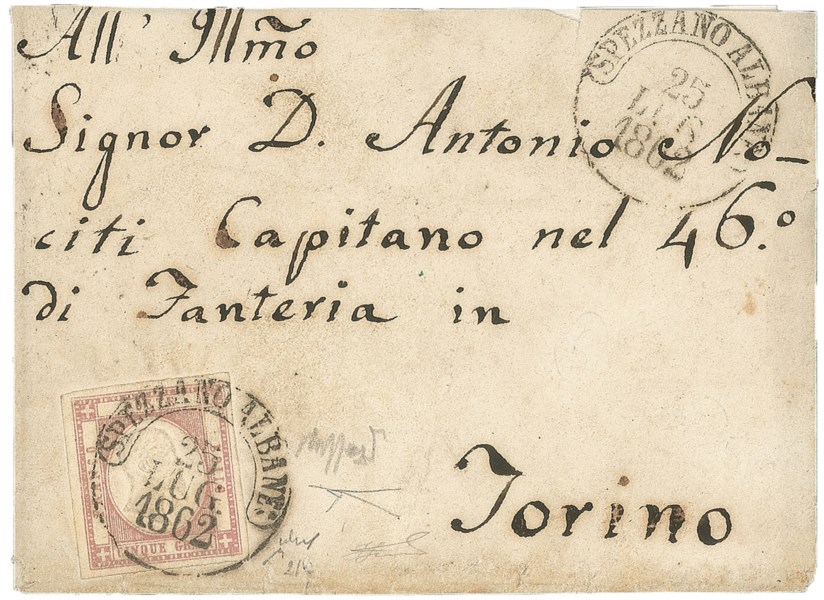 All' Illmo
Signor D. Antonio No-
citi Capitano nel 46.º
di Fanteria in
Torino
SPEZZANO ALBANE
25
LUG
1862
SPEZZANO ALBANE:
25
LUG.
1862
INQUE GRA